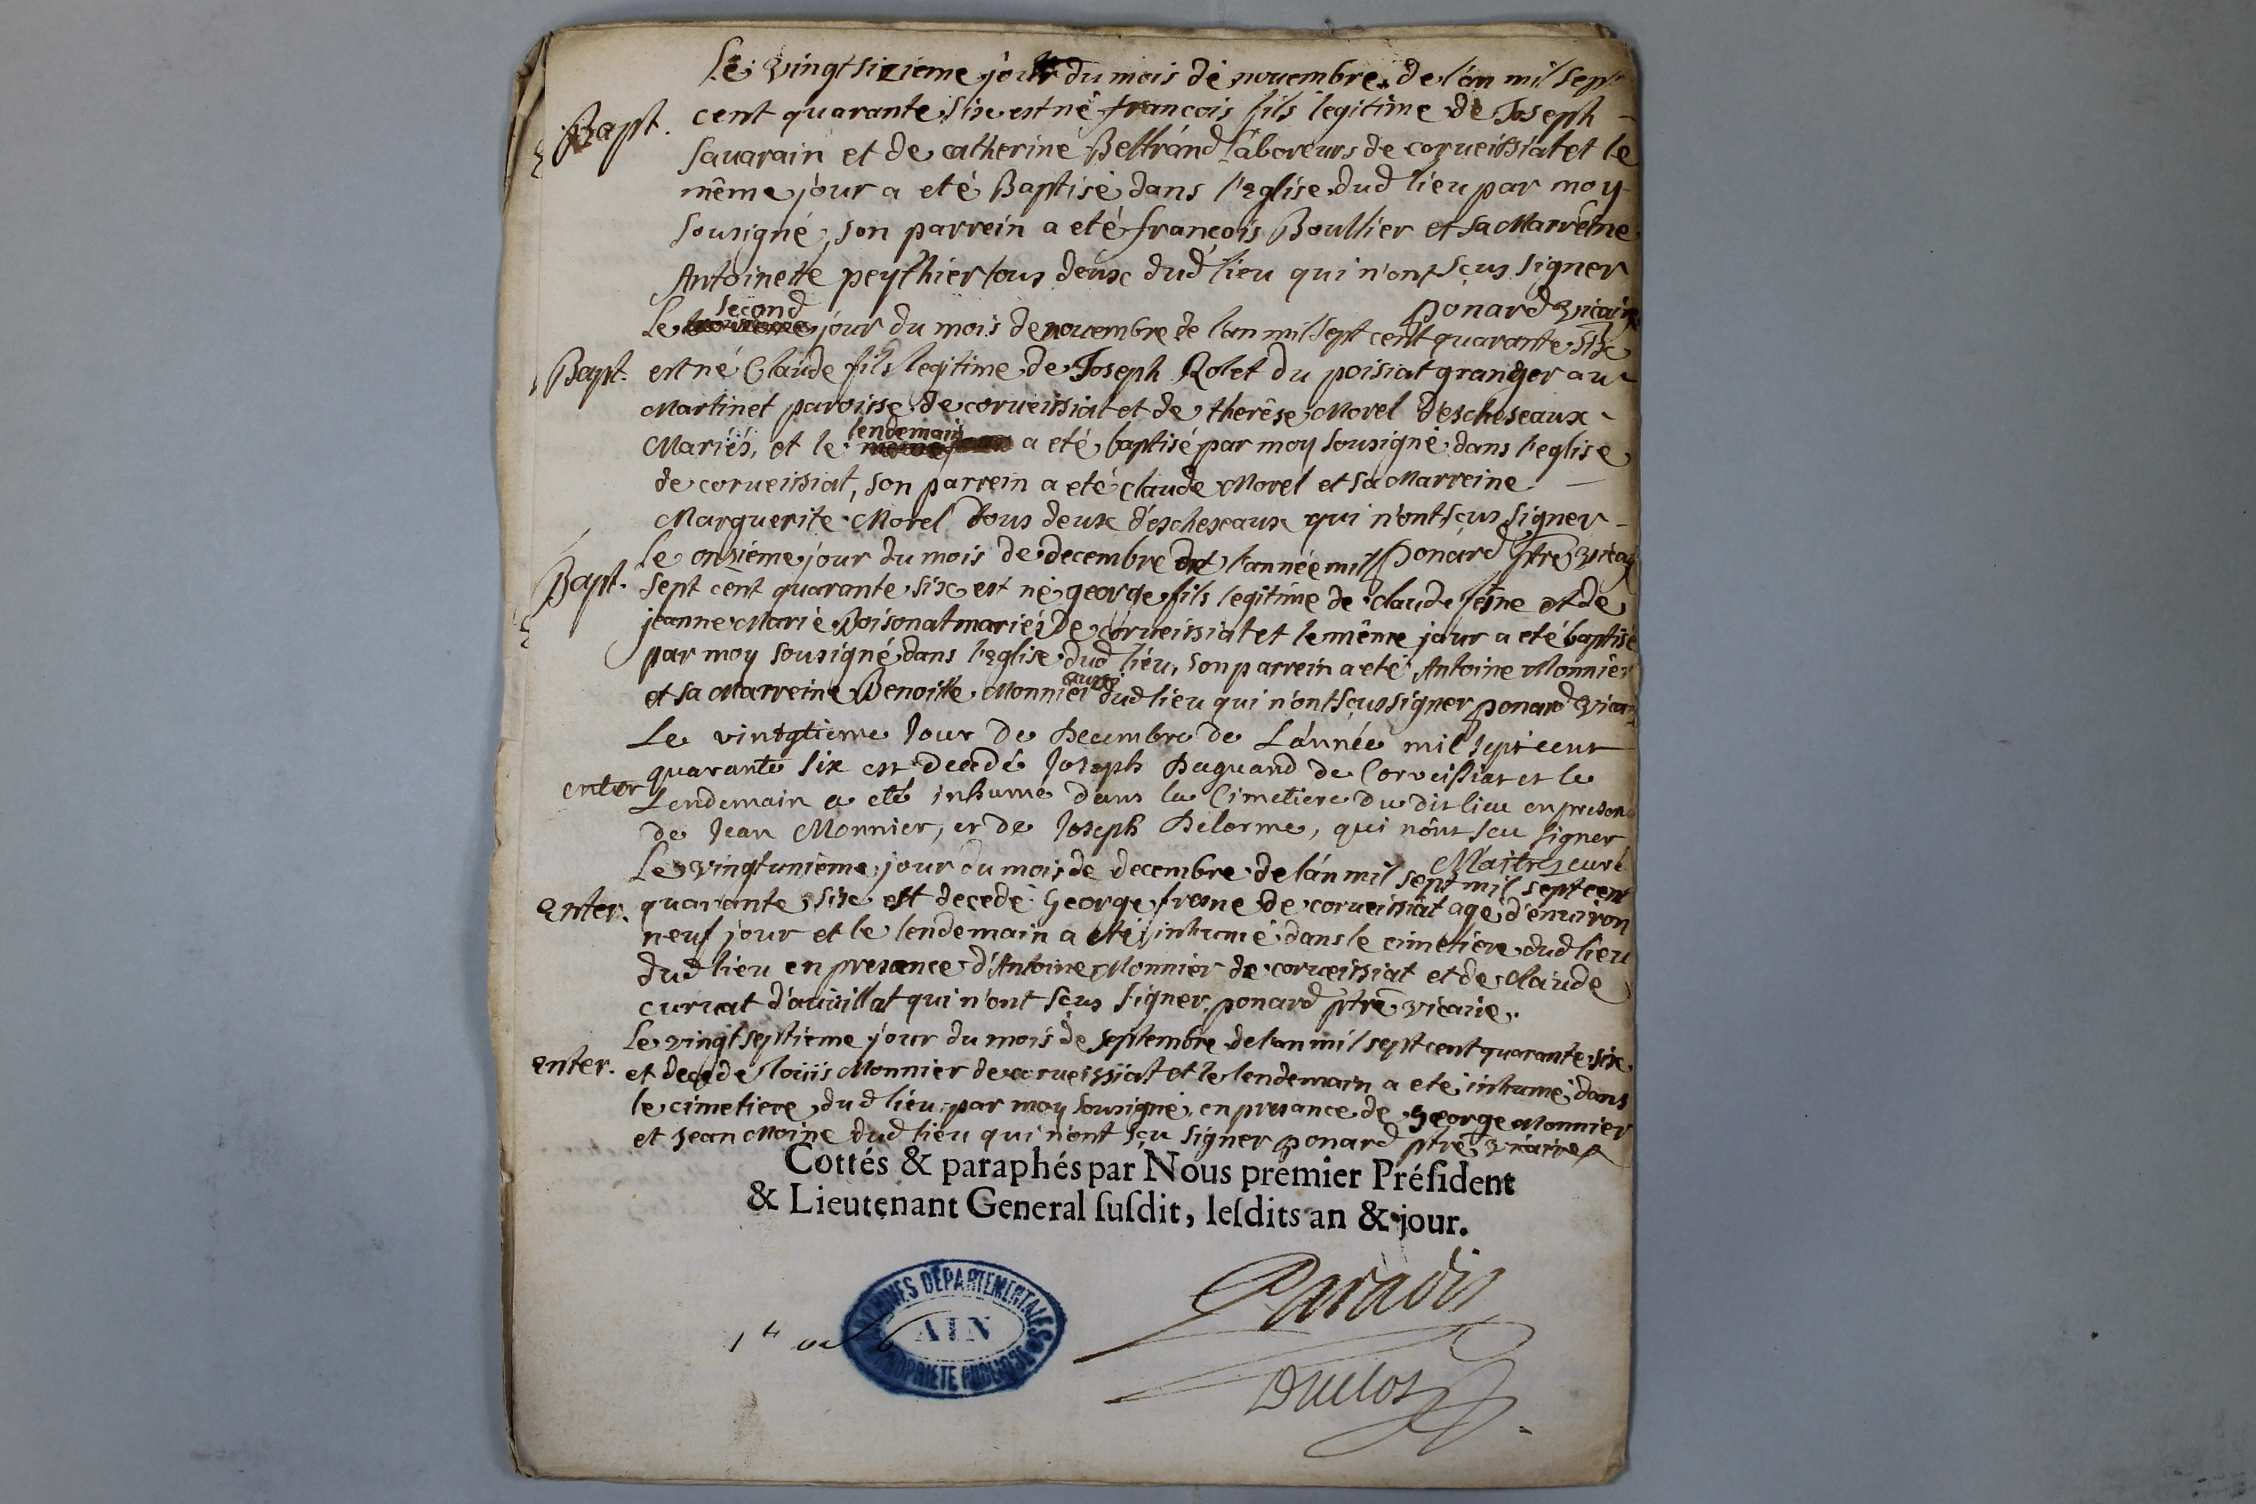 Le vingtsixieme jour du mois de novembre de l'an mil sept
Bapt. cent quarante six est né francois fils legitime de Joseph
Savarain et de catherine Beltrand laboreurs de corveissiat et le
même jour a eté Baptisé dans l'Eglise dud lieu par moy
sousigné, son parrein a eté francois Boullier et sa Marreine
Antoinette peythier tous deux dud lieu qui n'ont sçus signer
ponard vicaire
second
Le jour du mois de novembre de l'an mil sept cent quarante six
Bapt. est né Claude fils legitime de Joseph Rolet du poisiat granger au
Martinet paroisse de corveissiat et de therêse Morel d'escheseaux
lendemain
Mariés, et le a eté baptisé par moy sousigné dans l'eglise
de corveissiat, son parrein a eté claude Morel et sa Marreine
Marguerite Morel tous deux d'escheseaux qui n'ont sçus signer
ponard ptre vicaire
Le onzième jour du mois de decembre de l'année mil
Bapt. sept cent quarante six est né george fils legitime de claude et de
jeanne Marie Poisonat mariés De corveissiat et le même jour a eté baptisé
par moy sousigné dans l'Eglise dud lieu, son parrein a eté Antoine Monnier
aussi
et sa Marreine Benoitte Monnier dud lieu qui n'ont sçus signer ponard vicaire
Le vintgtieme Jour De Decembre de L'année mil sept cent
enter quarante six est decedé Joseph Duguand de Corveissiat et le
Lendemain a eté inhumé dans le Cimetiere du dit lieu en presence
de Jean Monnier, et de Joseph Delorme, qui n'ont sçu signer
Maitre curé
Le vingtunieme jour du mois de decembre de l'an mil sept mil sept cent
enter. quarante six est decedé George frene de corveissiat agé d'environ
neuf jour et le lendemain a eté inhumé dans le cimetiere dud lieu
dud lieu en presence d'Antoine Monnier de corveissiat et de claude
curvat d'avisillat qui n'ont sçus signer ponard ptre vicaire.
Le vingtseptieme jour du mois de septembre de l'an mil sept cent quarante six
enter. et decedé loüis Monnier de corveissiat et le lendemain a eté inhumé dans
le cimetiere dud lieu par moy sousigné, en presance de George Monnier
et Jean Moine dud lieu qui n'ont sçu signer ponard ptre vicaire
Cottés & paraphés par Nous premier Préſident
& Lieutenant General ſuſdit, leſdits an & jour.
Paradis
ARCHIVES DÉPARTEMENTALES
AIN
PROPRIÉTÉ PUBLIQUE
Duclos